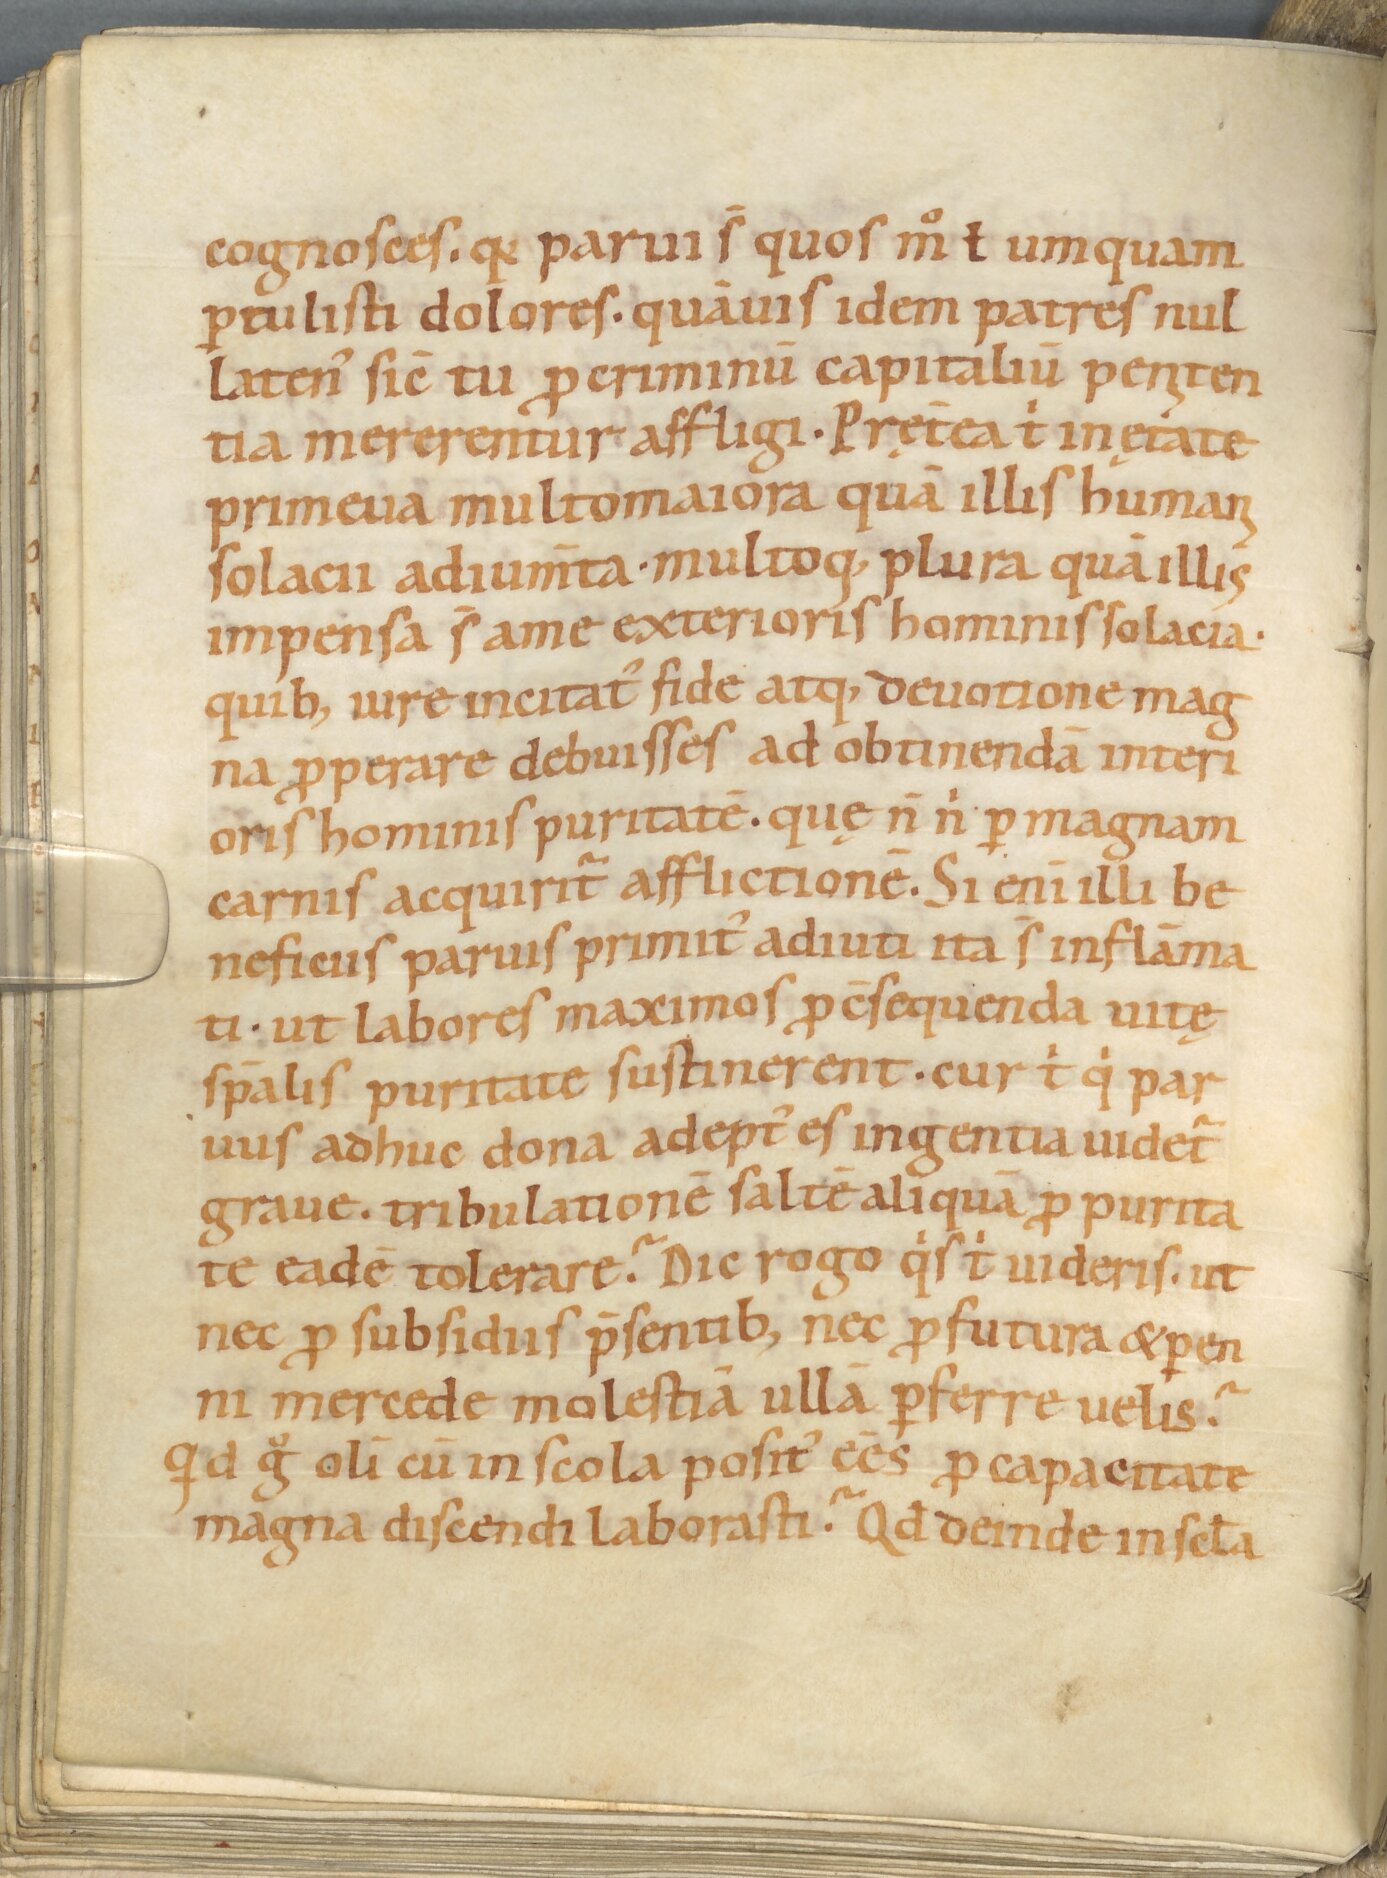 cognosces. qꝛ parui s̄ quos mͦ ł umquam
ꝑtulisti dolores. quāuis idem patres nul
laten᷒ sic̄ tu ꝓ criminū capitaliū peniten
tia mererentur affligi. Pręt̄ea tⁱ in ętate
primeua multo maiora quā illis humani
solacii adium̄ta. multoq, plura quā illis
impensa s̄ a me exterioris hominis solacia.
quib, iure incitat᷒ fide atq, deuotione mag
na ꝓperare debuisses ad obtinendā interi
oris hominis puritatē. quę n̄ nⁱ ꝑ magnam
carnis acquirit᷑ afflictionē. Si eni̅ illi be
neficiis paruis primit᷒ adiuti ita s̄ inflāma
ti. ut labores maximos ꝓ c̄sequenda uitę
sp̄alis puritate sustinerent. cur tⁱ qⁱ par
uus adhuc dona adept᷒ es ingentia uidet᷑
graue. tribulationē saltē aliquā ꝓ purita
te eadē tolerare? Dic rogo qⁱs tⁱ uideris. ut
nec ꝓ subsidiis p̄sentib, nec ꝓ futura & ꝑen
ni mercede molestiā ullā ꝑferre uelis?
Qⁱd gͦ oli̅ cū in scola posit᷒ ēēs ꝓ capacitate
magna discendi laborasti? Qđ deinde in scł̄a